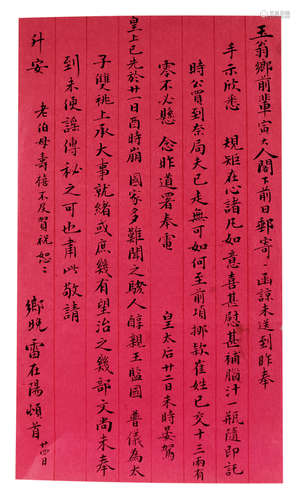 玉翁鄉前輩寅大人閣下前日郵寄一函諒未送到昨奉
手示欣悉 規矩在心諸凡如意喜甚慰甚補腦汁一瓶隨即託
時公買到奈局夫已走無可如何至前項挪款崔姓已交十三兩有
零不必懸 念昨道署奉電 皇太后廿二日未時晏駕
皇上已先於廿一日酉時崩 國家多難聞之駭人 醇親王監國 普儀為太
子雙祧上承大事就緒或庶幾有望治之幾部文尚未奉
到未便謠傳秘之可也肅此敬請
升安 老伯母壽禧不及賀祝恕恕
鄉晚雷在陽頓首 廿四日